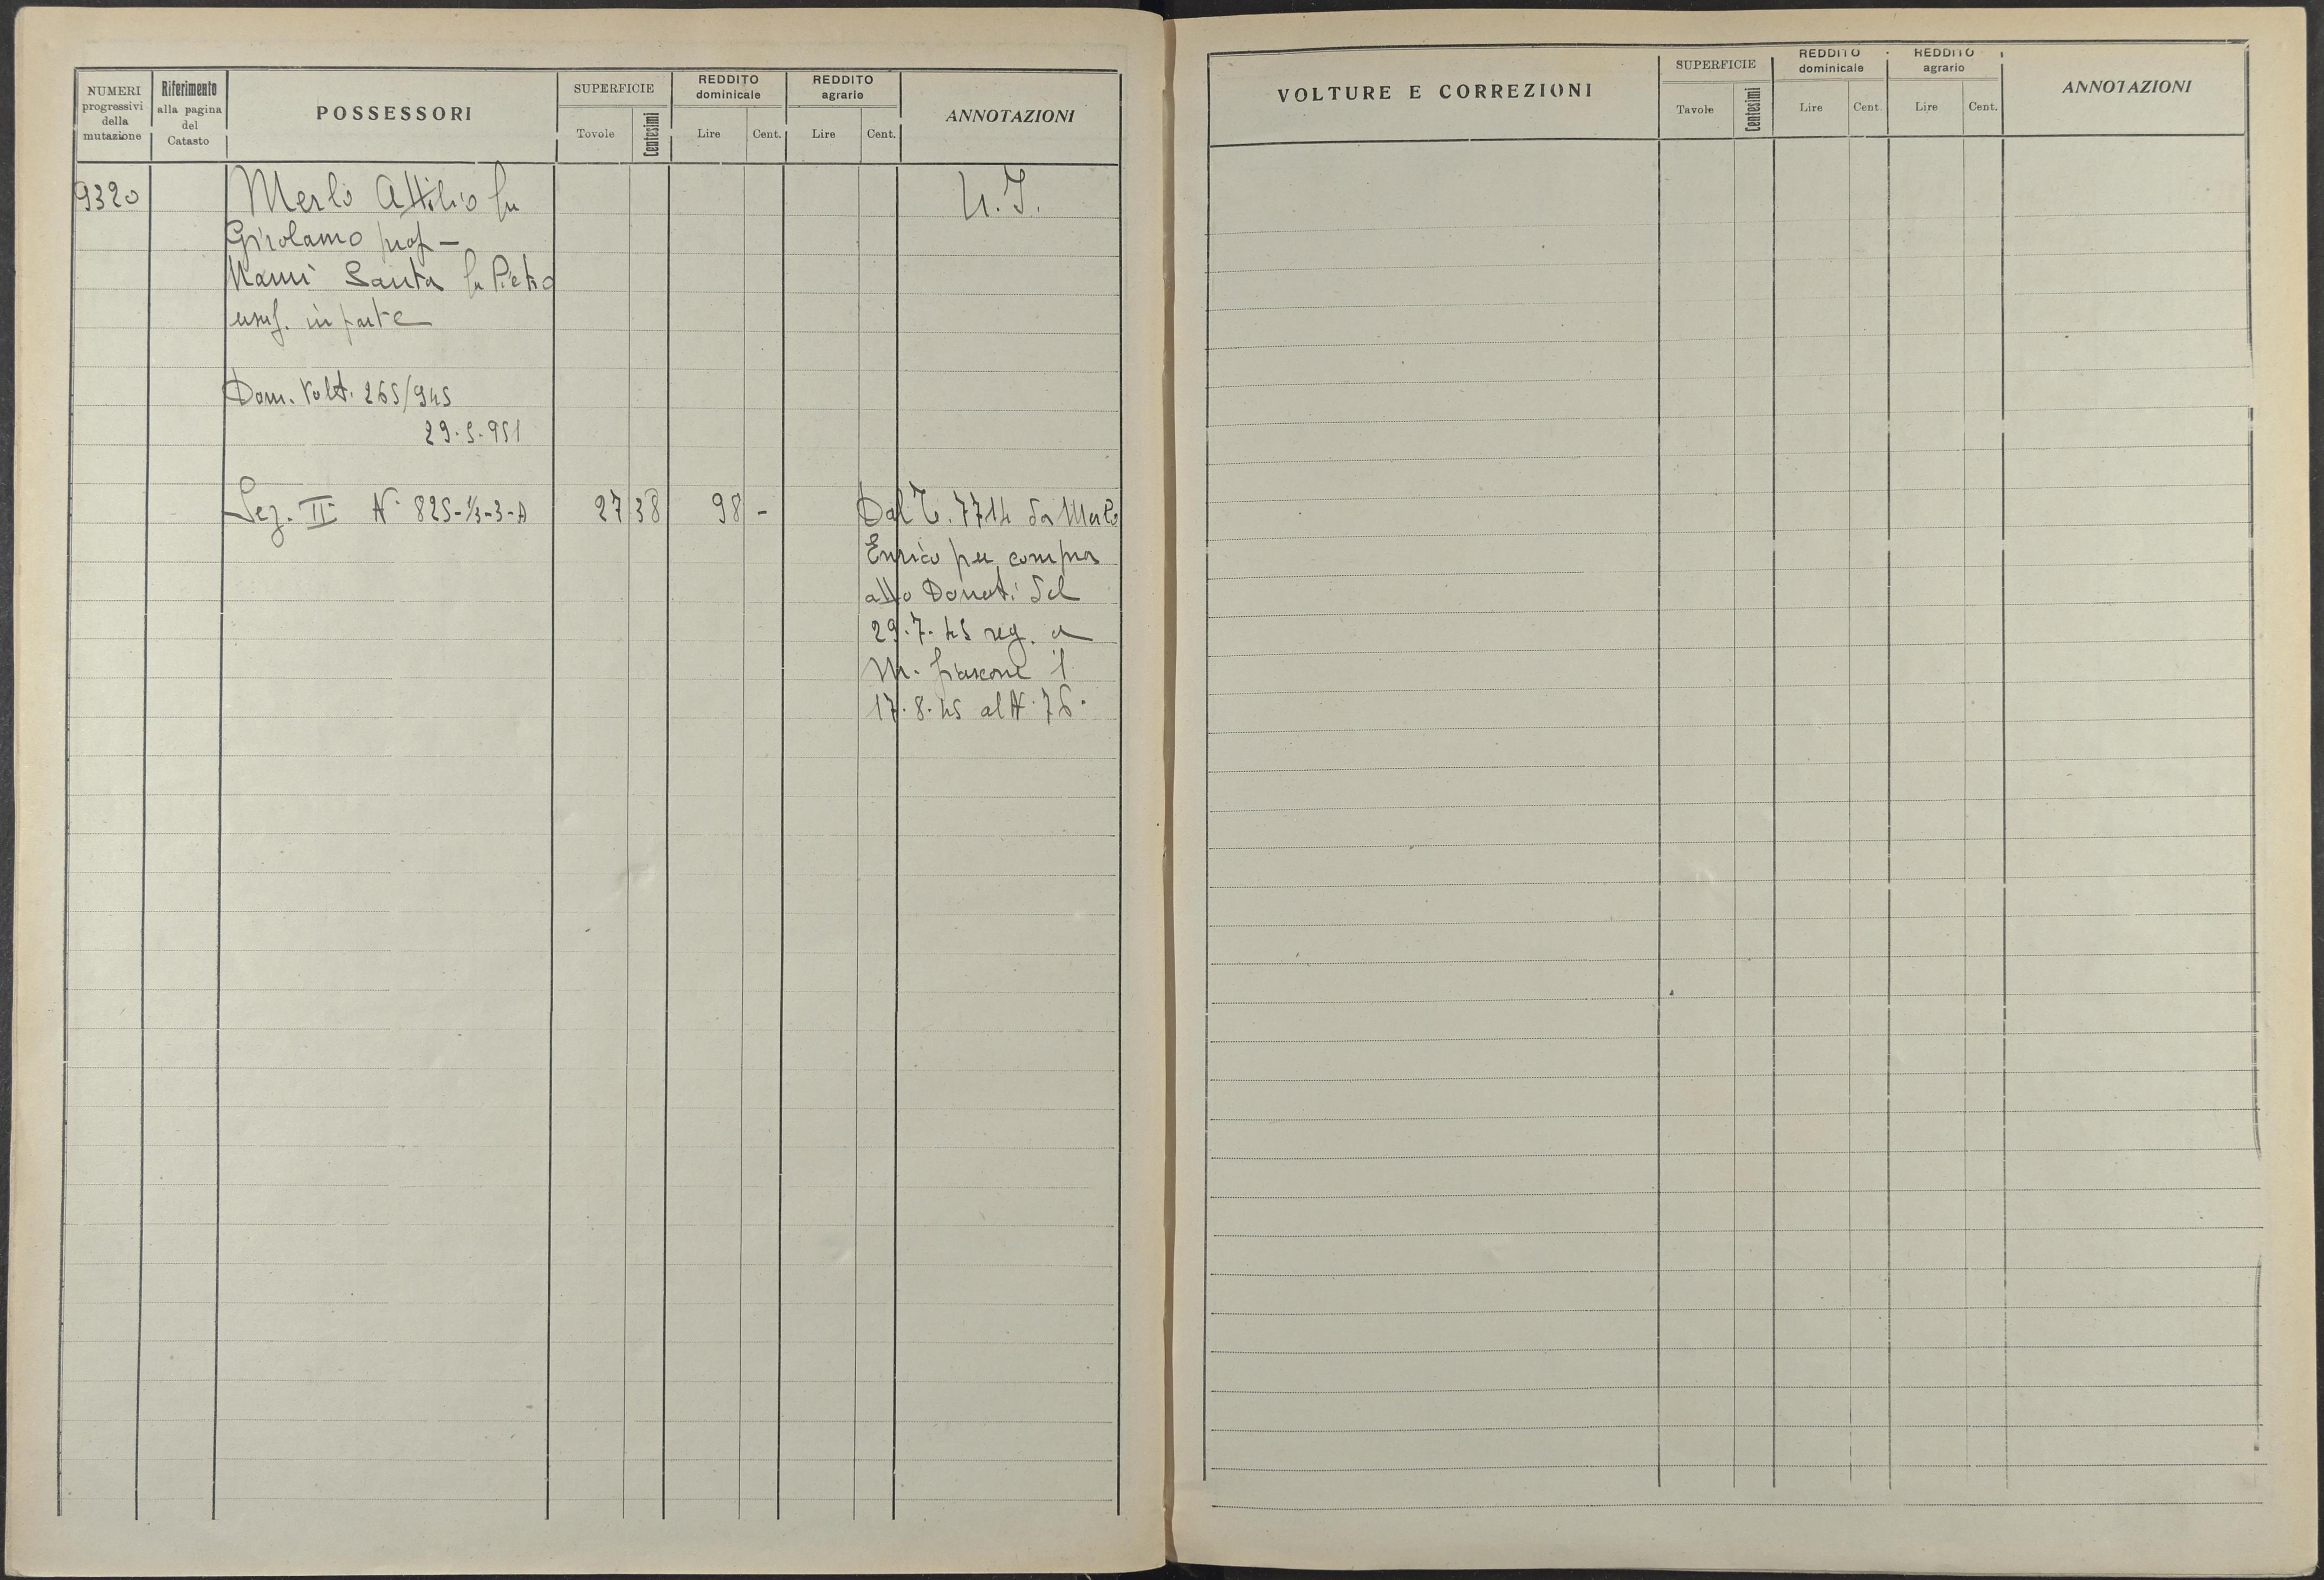 NUMERI progressivi della mutazione
Riferimento alla pagina del Catasto
POSSESSORI
SUPERFICIE
Tovole
Centesimi
REDDITO dominicale
Lire
Cent.
REDDITO agrario
Lire
Cent.
ANNOTAZIONI
9320
Merlo Attilio fu
U.I.
Girolamo prop -
Nanni Santa fu Pietro
usuf. in parte
Dom. Volt. 265/945
29.5.951
Sez. II N. 825-1/3-3-A 27 38 98 -
Dal T. 7714 da Merlo
Enrico per compra
atto Donati del
29.7.45 reg. a
M. fiascone il
17.8.45 al N. 76.
VOLTURE E CORREZIONI
SUPERFICIE
Tavole
Centesimi
REDDITO dominicale
Lire
Cent.
REDDITO agrario
Lire
Cent.
ANNOTAZIONI